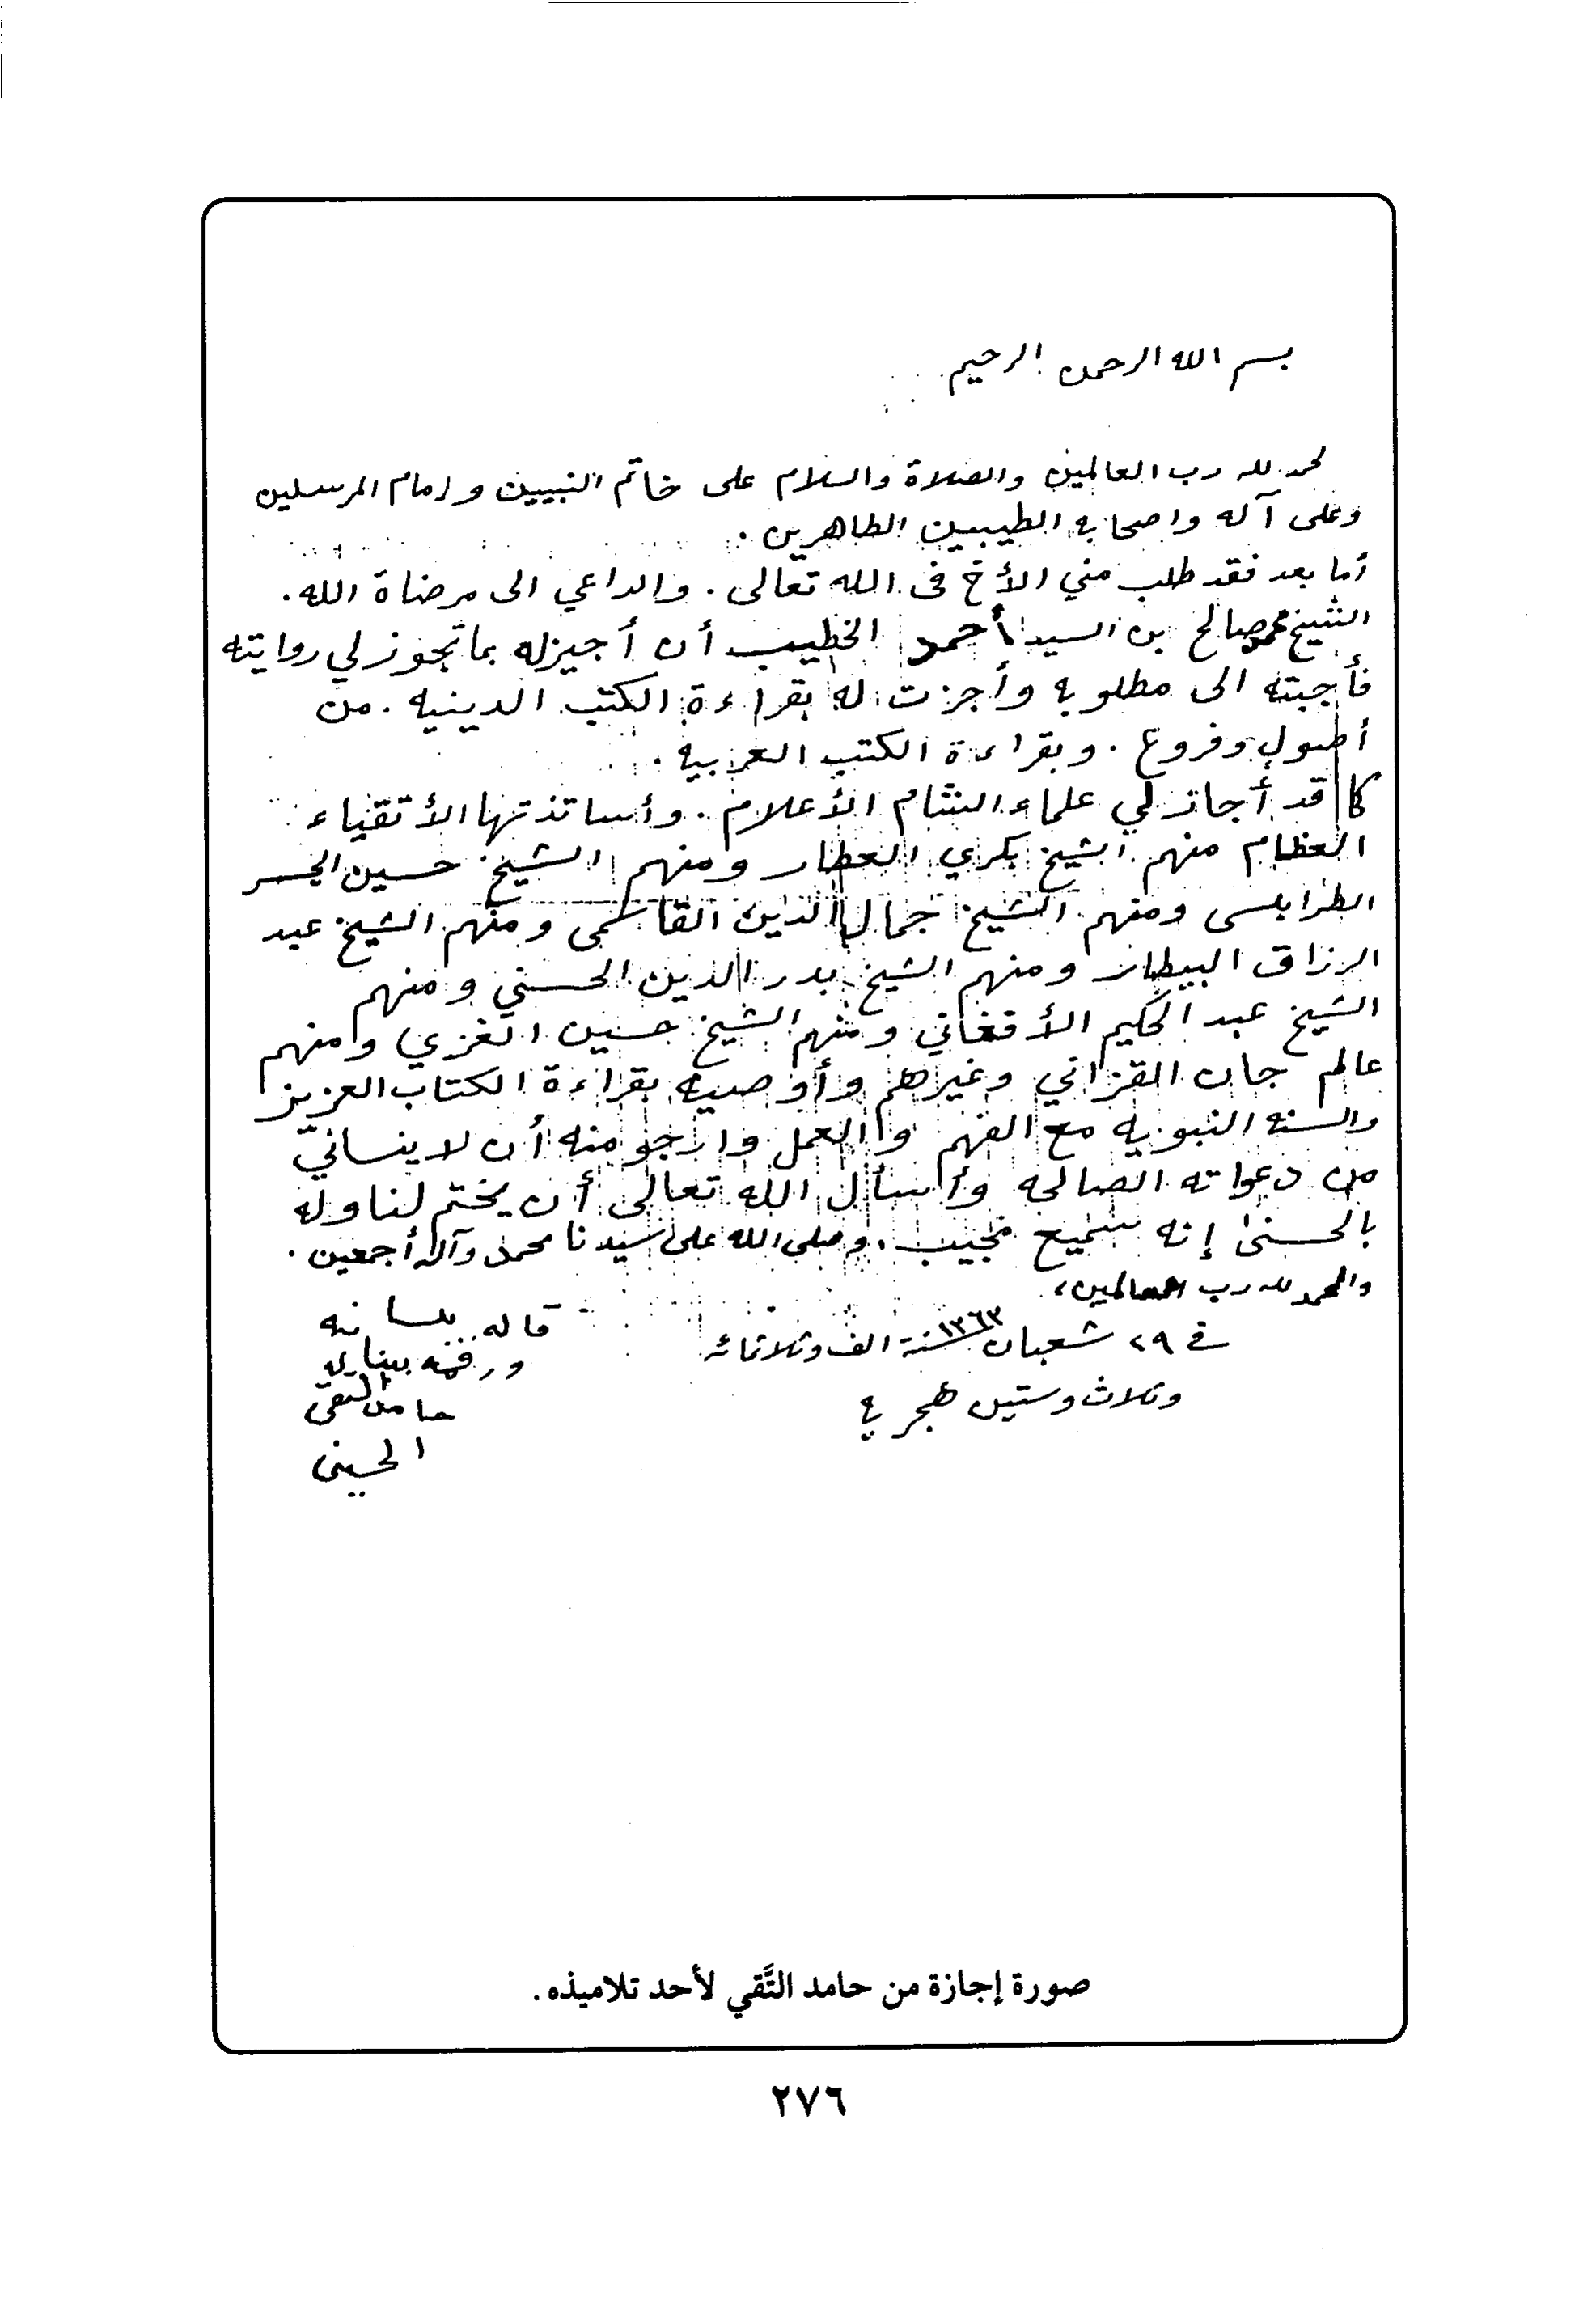 بسم الله الرحمن الرحيم
لحمد لله رب العالمين والصلاة والسلام على خاتم النبيين وإمام المرسلين
وعلى آله واصحابه الطيبين الطاهرين .
أما بعد فقد طلب مني الأخ في الله تعالى . والداعي الى مرضاة الله .
الشيخ محمد صالح بن السيد أحمد الخطيب أن أجيزله بما تجوز لي روايته
فأجبته الى مطلوبه وأجزت له بقراءة الكتب الدينيه . من
أصول وفروع . وبقراءة الكتب العربيه .
كما قد أجاز لي علماء الشام الأعلام . وأساتذتها الأتقياء
العظام منهم الشيخ بكري العطار ومنهم الشيخ حسين الجسر
الطرابلسى ومنهم الشيخ جمال الدين القاسمى ومنهم الشيخ عبد
الرزاق البيطار ومنهم الشيخ بدر الدين الحسني ومنهم
الشيخ عبد الحكيم الأفغاني ومنهم الشيخ حسين الغزي ومنهم
عالم جان القزاني وغيرهم وأوصيه بقراءة الكتاب العزيز
والسنه النبويه مع الفهم والعمل وارجو منه أن لا ينساني
من دعواته الصالحه وأسأل الله تعالى أن يختم لنا وله
بالحسنى إنه سميع مجيب . وصلى الله على سيدنا محمد وآله أجمعين .
والحمد لله رب العالمين ،
في ٢٩ شعبان ١٣٦٣ سنة الف وثلاثمائه
وثلاث وستين هجريه
قاله بلسانه
ورقمه ببنانه
حامد التقى
الحسيني
صورة إجازة من حامد التَّقي لأحد تلاميذه .
٢٧٦